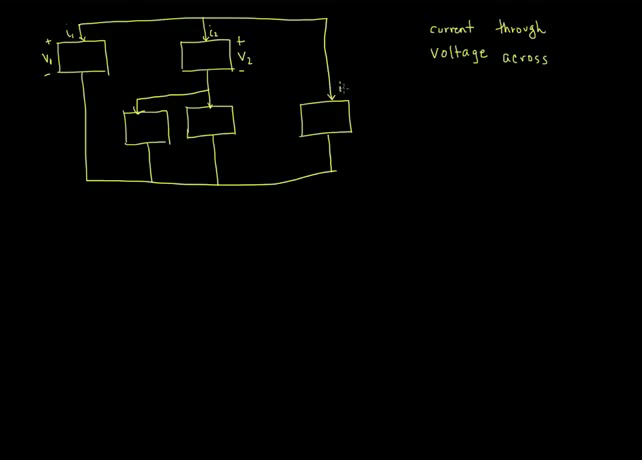 i₁
i₂
+
V₁
-
+
V₂
-
current through
Voltage across